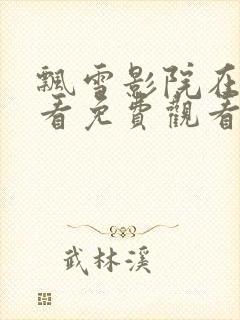 飄雪影院在
看免費觀看
武林溪